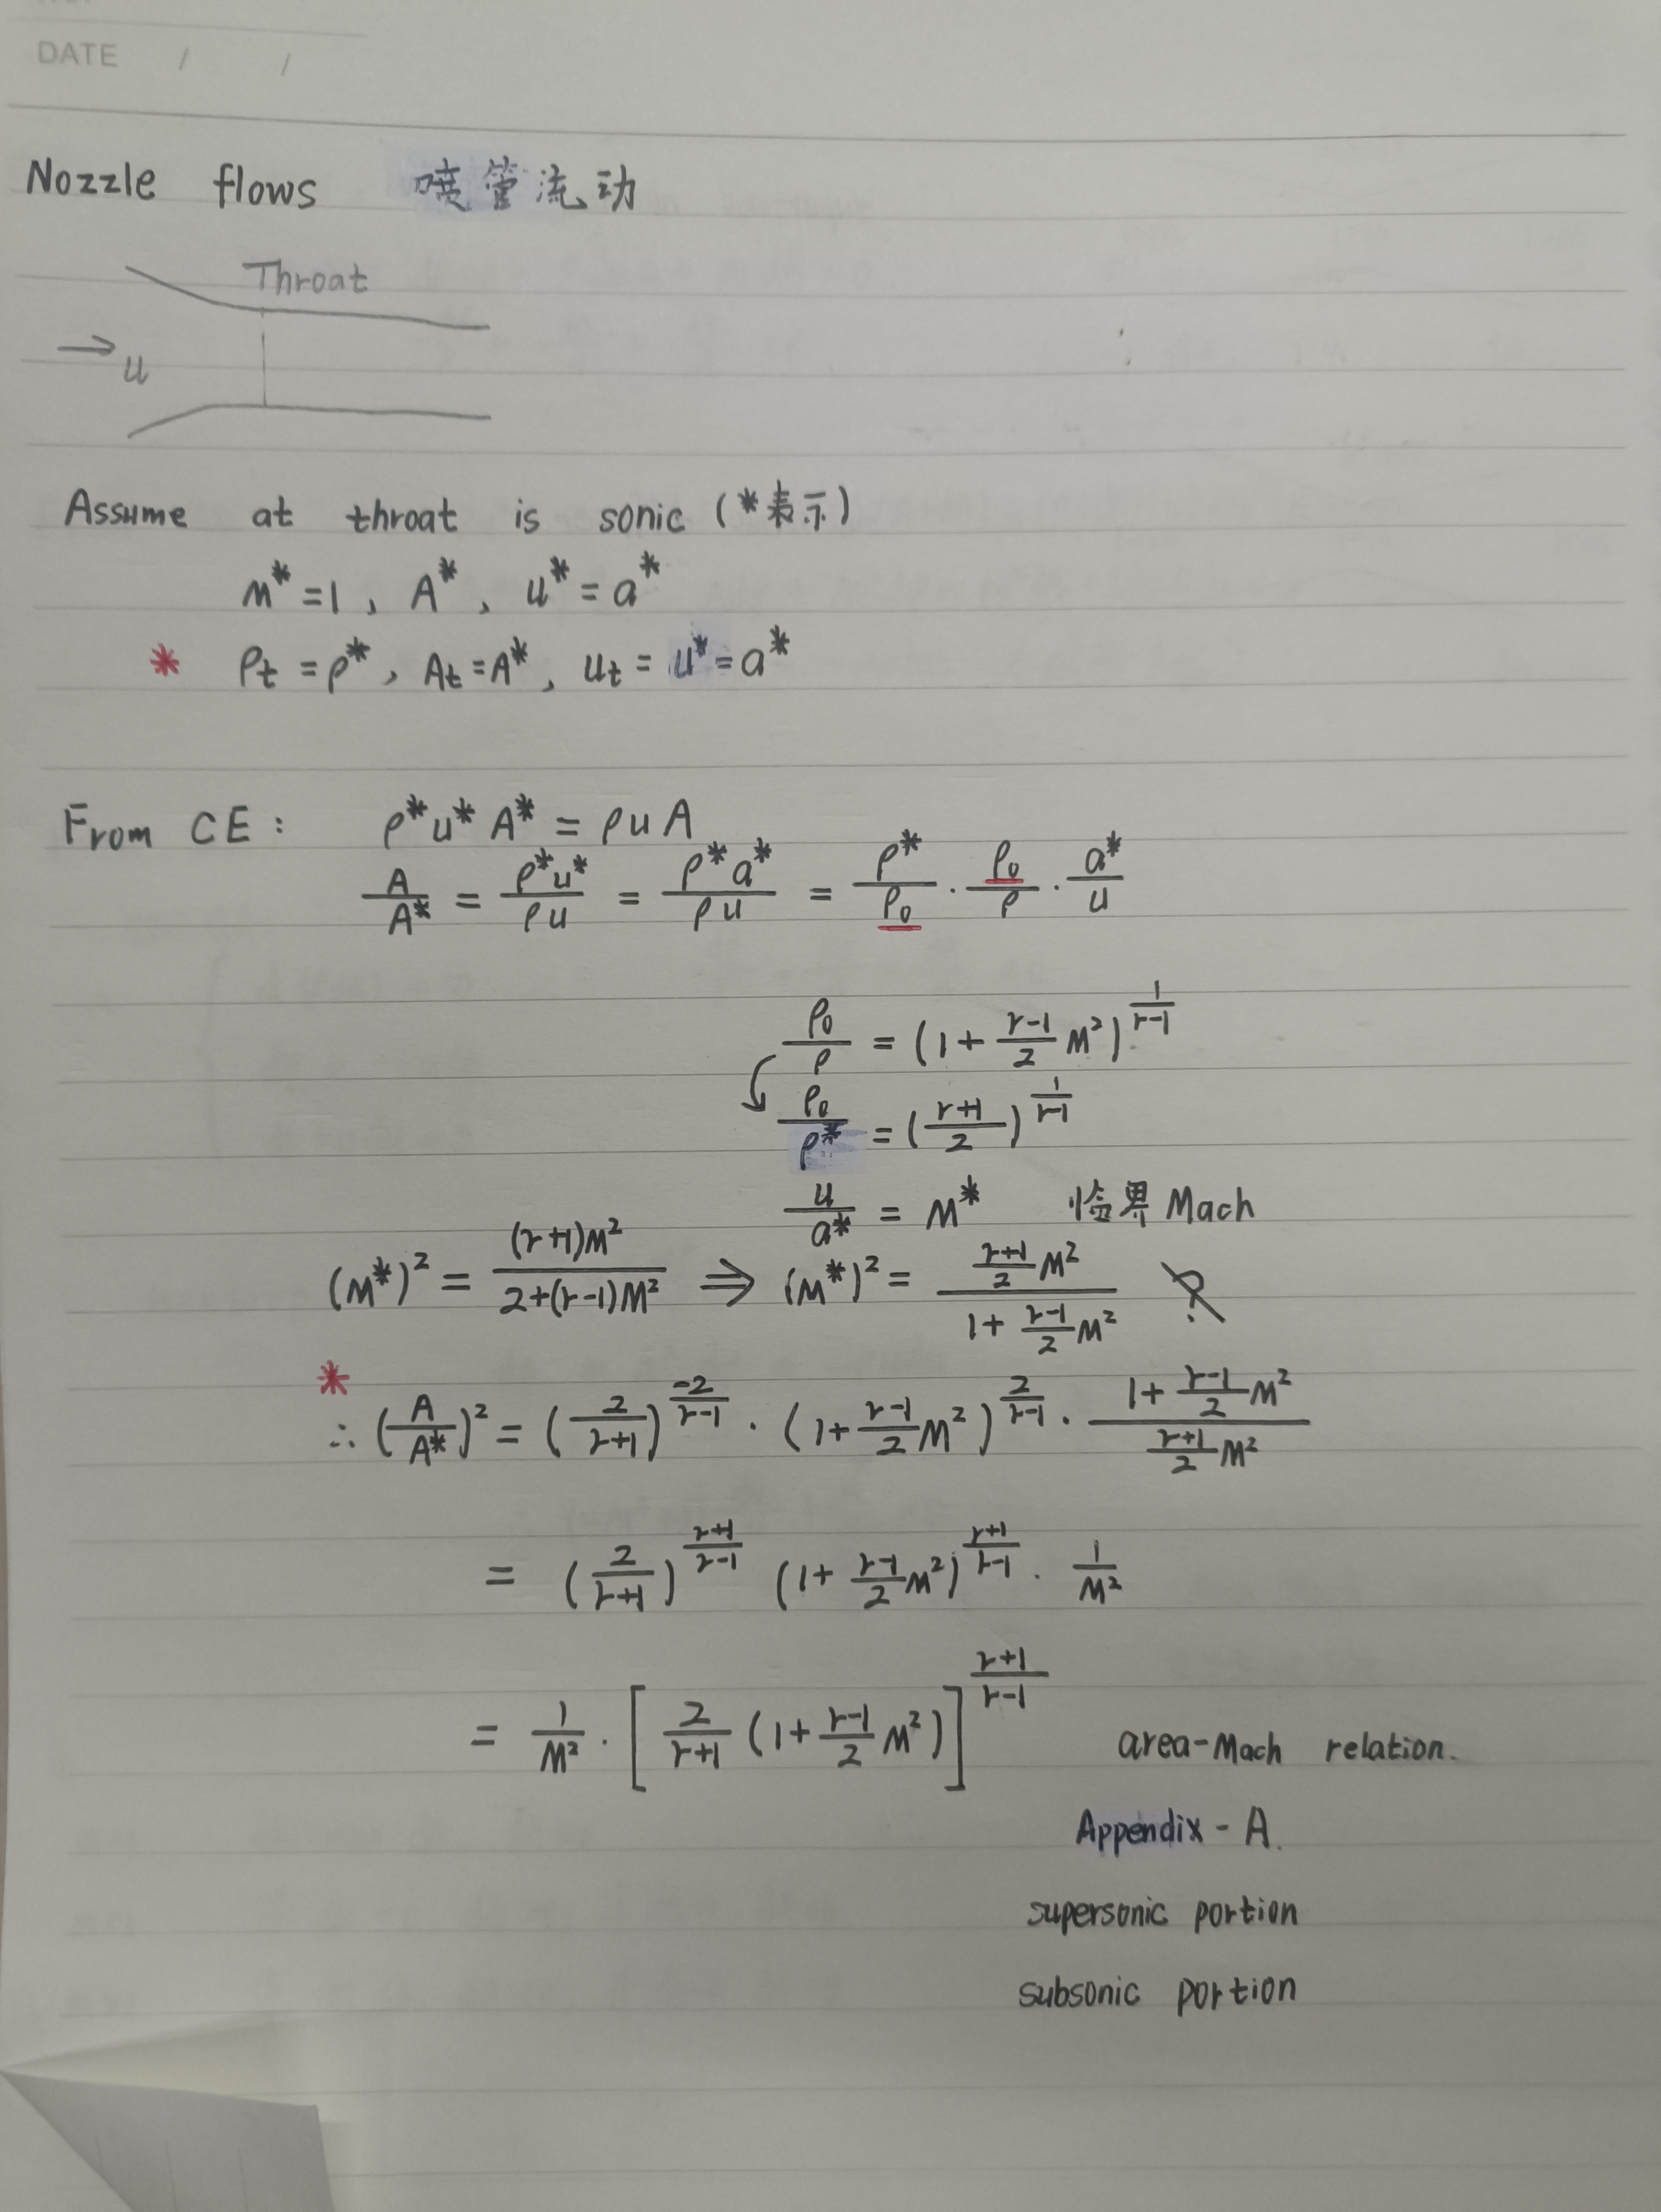 DATE / /
Nozzle flows 喷管流动
Throat
→ u
Assume at throat is sonic (*表示)
M* = 1, A*, u* = a*
* ρt = ρ*, At = A*, ut = u* = a*
From CE: ρ* u* A* = ρ u A
A/A* = ρ*u*/ρu = ρ*a*/ρu = ρ*/ρ0 · ρ0/ρ · a*/u
ρ0/ρ = (1 + (r-1)/2 M²)^(1/(r-1))
ρ0/ρ* = ((r+1)/2)^(1/(r-1))
u/a* = M* 临界 Mach
(M*)² = (r+1)M² / (2+(r-1)M²) ⇒ (M*)² = ((r+1)/2 M²) / (1 + (r-1)/2 M²)
*
∴ (A/A*)² = (2/(r+1))^(-2/(r-1)) · (1 + (r-1)/2 M²)^(2/(r-1)) · (1 + (r-1)/2 M²) / ((r+1)/2 M²)
= (2/(r+1))^((r+1)/(r-1)) (1 + (r-1)/2 M²)^((r+1)/(r-1)) · 1/M²
= 1/M² · [2/(r+1) (1 + (r-1)/2 M²)]^((r+1)/(r-1)) area-Mach relation.
Appendix - A.
supersonic portion
subsonic portion